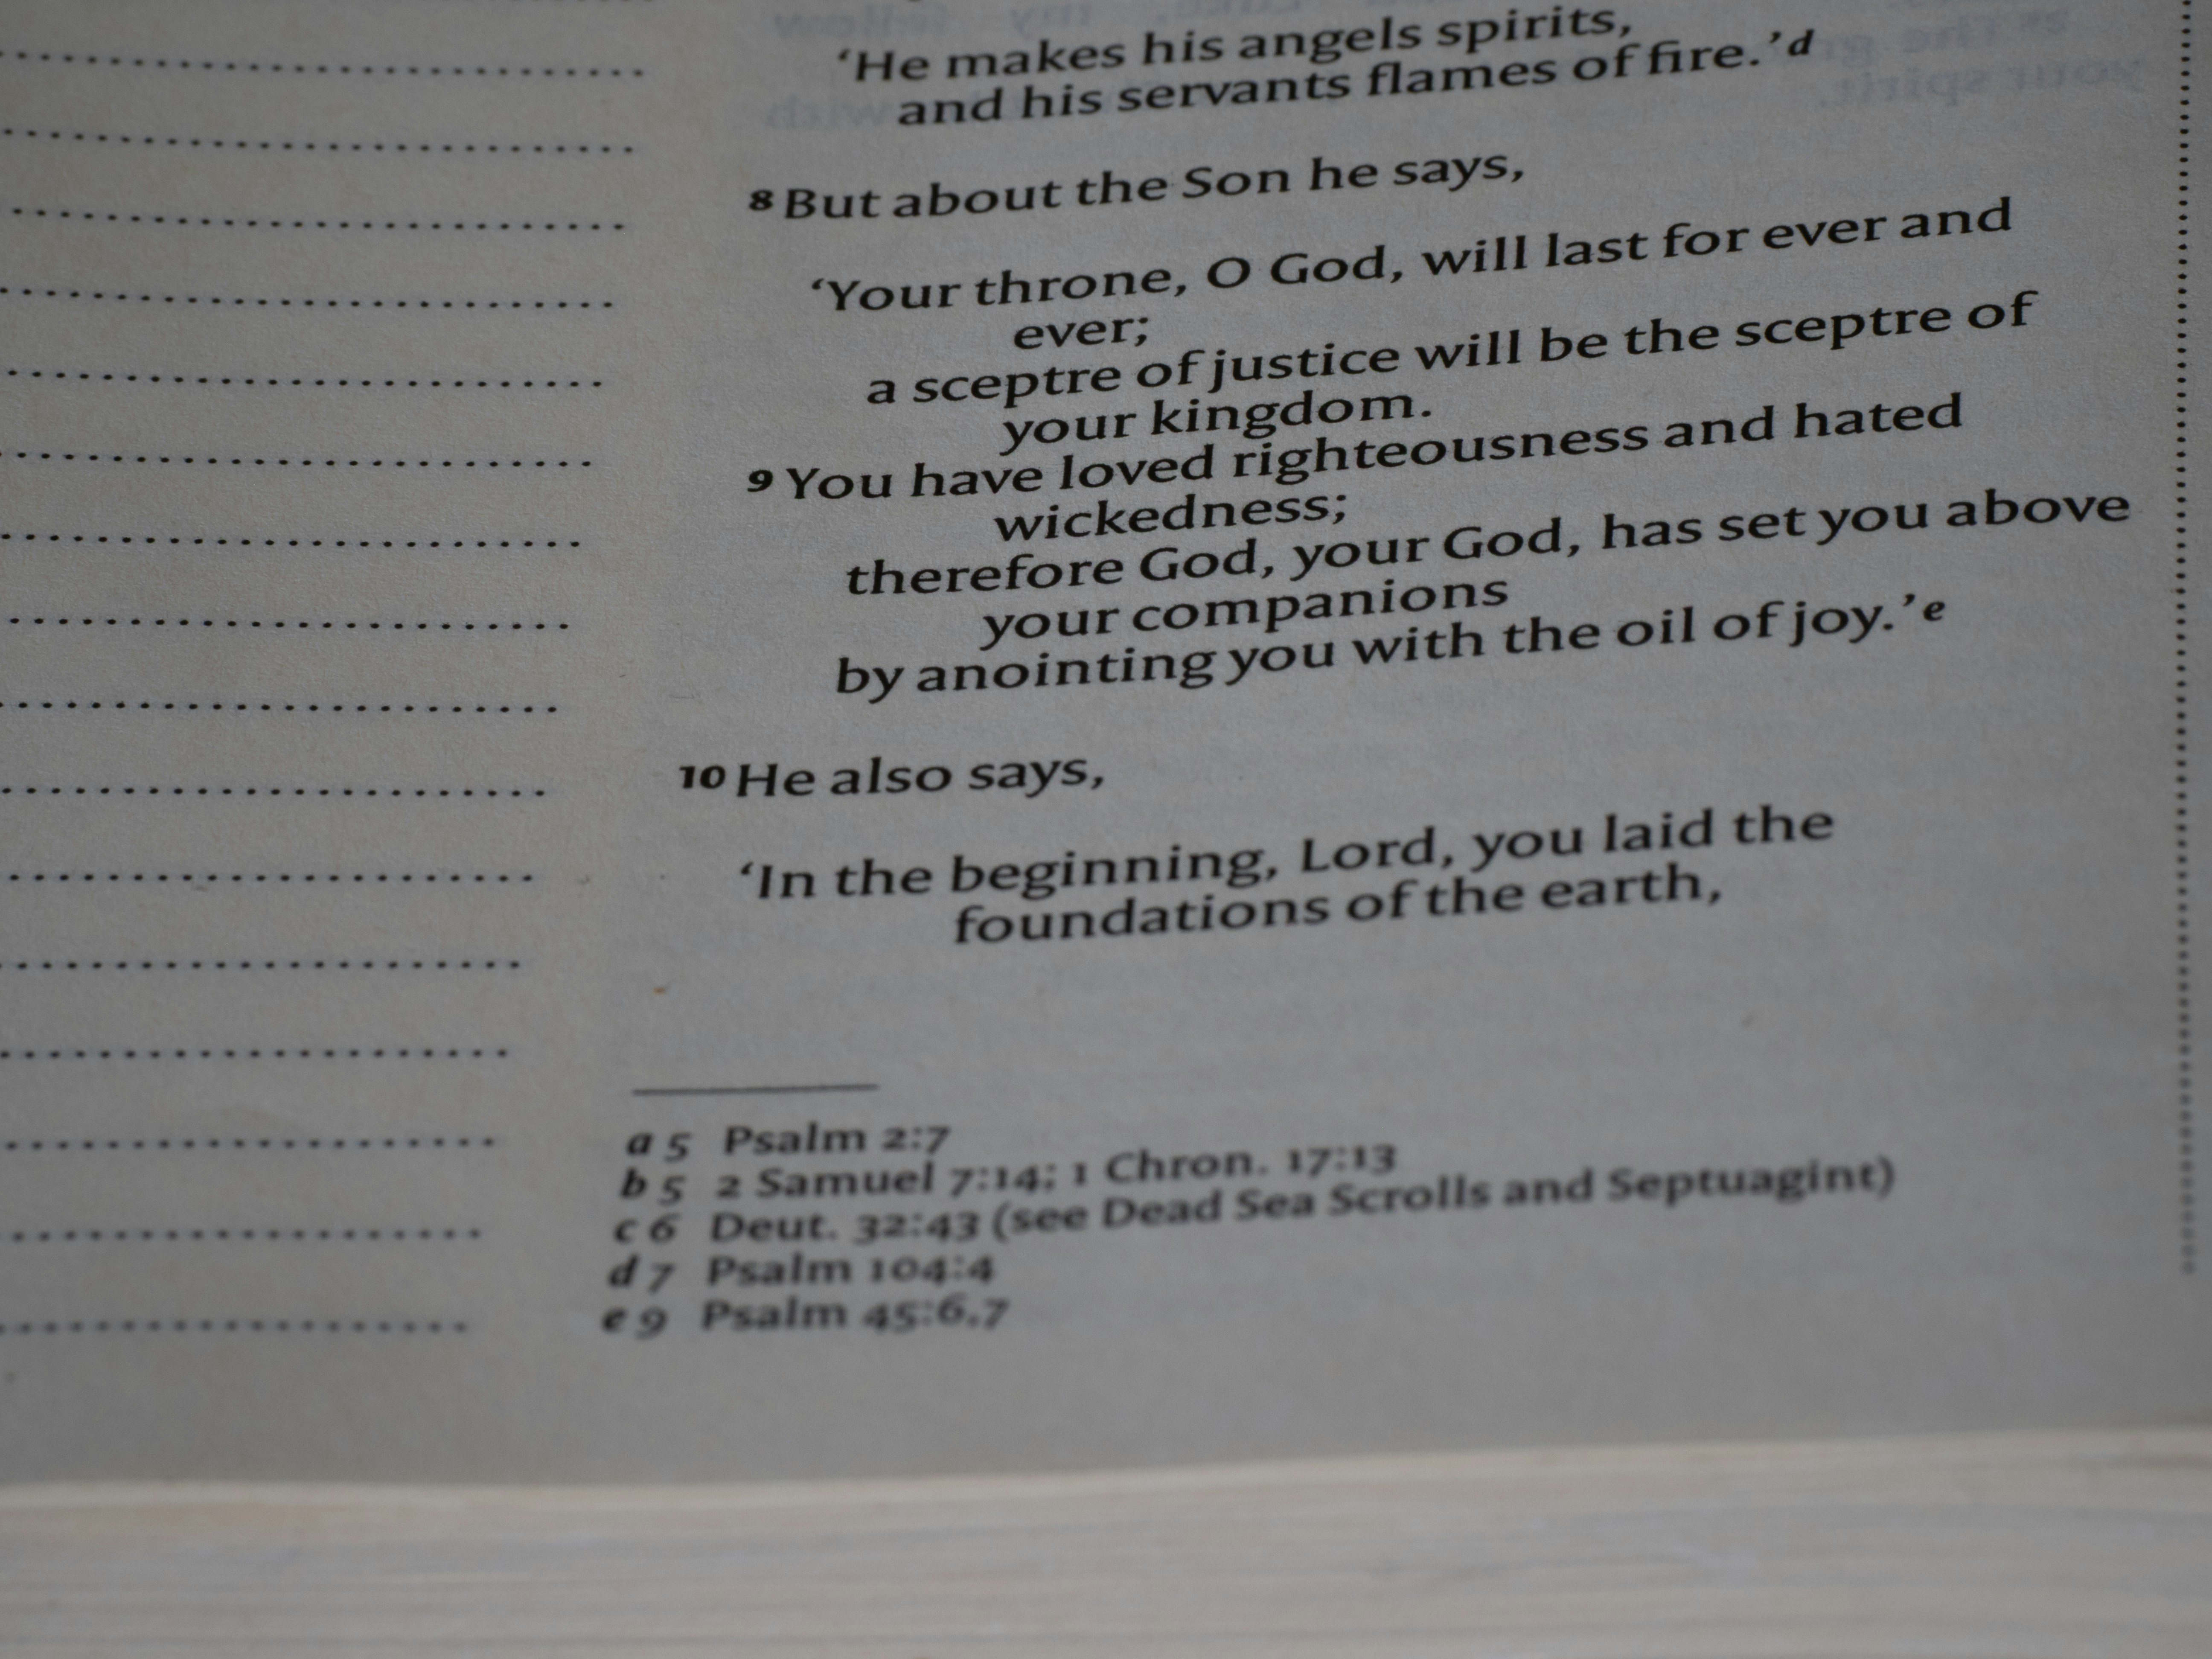 ‘He makes his angels spirits,
and his servants flames of fire.’ d
8 But about the Son he says,
‘Your throne, O God, will last for ever and
ever;
a sceptre of justice will be the sceptre of
your kingdom.
9 You have loved righteousness and hated
wickedness;
therefore God, your God, has set you above
your companions
by anointing you with the oil of joy.’ e
10 He also says,
‘In the beginning, Lord, you laid the
foundations of the earth,
a 5 Psalm 2:7
b 5 2 Samuel 7:14; 1 Chron. 17:13
c 6 Deut. 32:43 (see Dead Sea Scrolls and Septuagint)
d 7 Psalm 104:4
e 9 Psalm 45:6,7